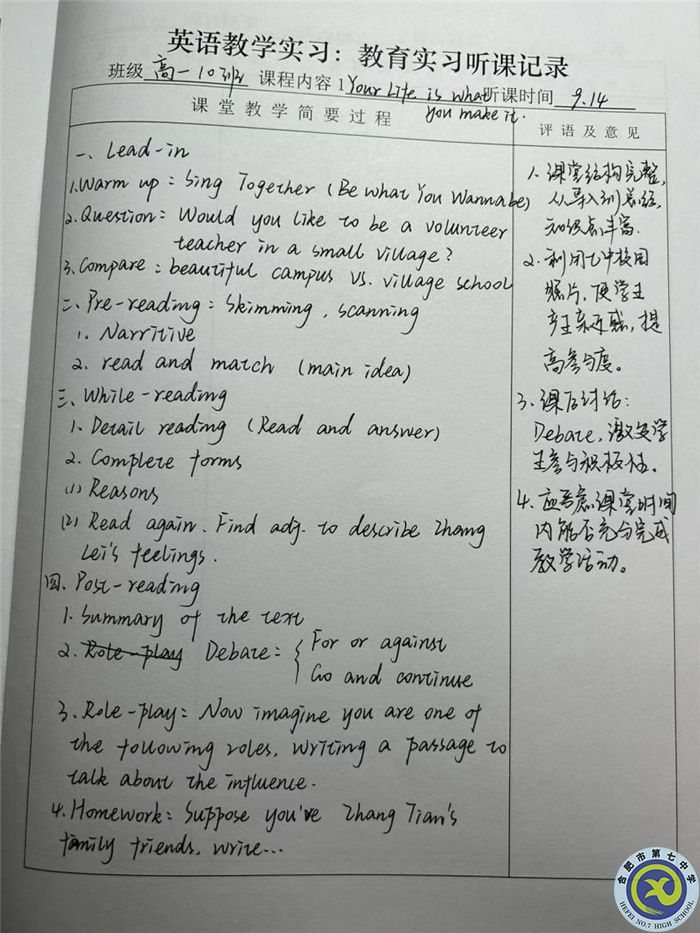 英语教学实习：教育实习听课记录
班级 高一10班 课程内容 1 Your Life is what 听课时间 9.14
you make it.
课堂教学简要过程
评语及意见
一、Lead-in
1. Warm up: Sing Together (Be what You Wannabe)
2. Question: Would you like to be a volunteer
teacher in a small village?
3. Compare: beautiful campus vs. village school
二、Pre-reading: Skimming, scanning
1. Narritive
2. read and match (main idea)
三、While-reading
1. Detail reading (Read and answer)
2. Complete forms
(1) Reasons
(2) Read again. Find adj. to describe Zhang
Lei's feelings.
四、Post-reading
1. Summary of the text
2. Role-play Debate: { For or against
Go and continue
3. Role-play: Now imagine you are one of
the following roles, writing a passage to
talk about the influence.
4. Homework: Suppose you're Zhang Tian's
family friends, write...
1. 课堂结构完整,
从导入到总结,
知识点丰富.
2. 利用七中校园
照片, 使学生
产生亲近感, 提
高参与度。
3. 课后讨论:
Debate, 激发学
生参与积极性。
4. 应考虑课堂时间
内能否充分完成
教学活动。
合肥市第七中学
HEFEI NO.7 HIGH SCHOOL